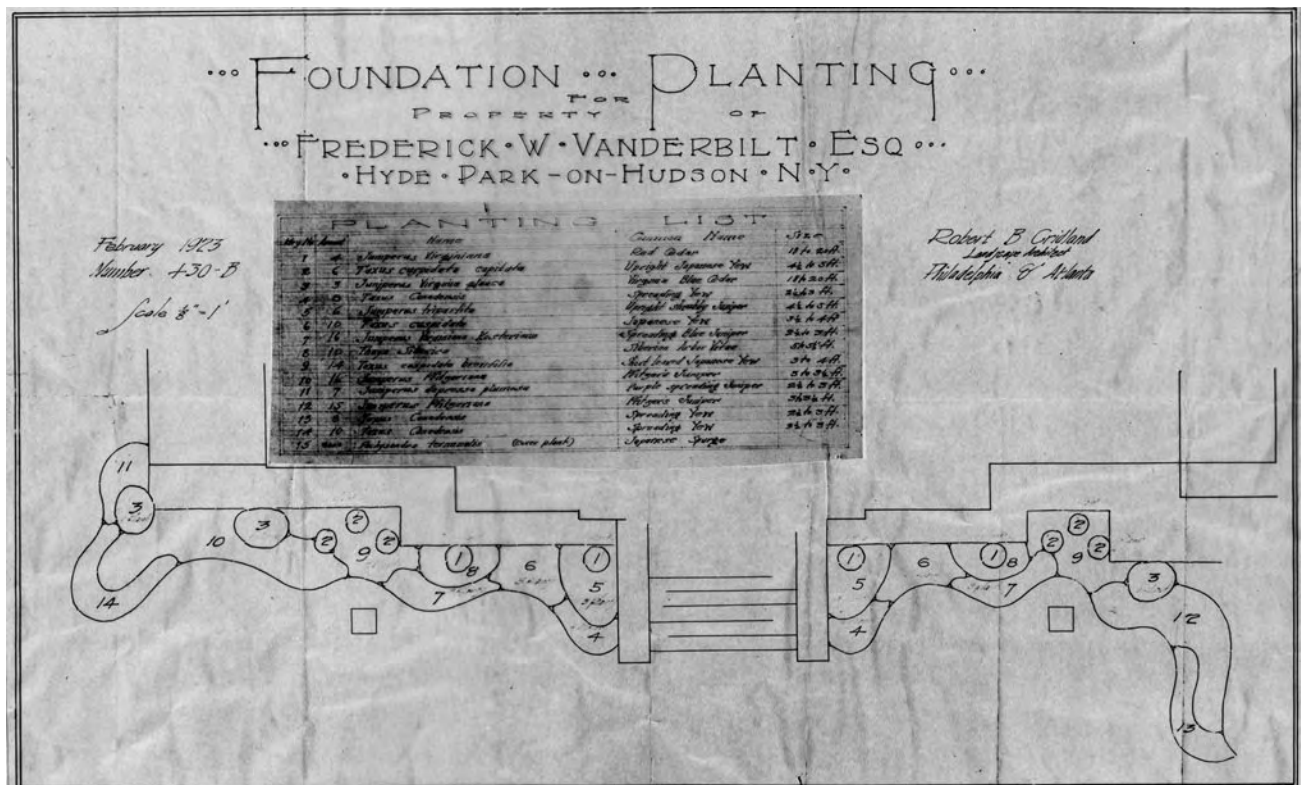 FOUNDATION PLANTING
FOR
PROPERTY OF
FREDERICK · W · VANDERBILT · ESQ
· HYDE · PARK-ON-HUDSON · N · Y ·
February 1923
Number 430-B
Scale ⅛"-1'
Robert B Cridland
Landscape Architect
Philadelphia & Atlanta
PLANTING LIST
Name Common Name Size
1 4 Juniperus Virginiana Red Cedar 18 to 20 ft.
2 6 Taxus cuspidata capitata Upright Japanese Yew 4½ to 5 ft.
3 3 Juniperus Virginia glauca Virginia Blue Cedar 18 to 20 ft.
4 Taxus Canadensis Spreading Yew
5 6 Juniperus tripartita Upright Juniper 4½ to 5 ft.
6 10 Taxus cuspidata Japanese Yew 3½ to 4 ft
7 16 Juniperus Spreading Blue Juniper
8 10 Thuya Siberica Siberian Arbor Vitae
9 14 Taxus cuspidata brevifolia Short leaved Japanese Yew 3 to 4 ft.
10 16 Juniperus Pfitzeriana Juniper
11 7 Juniperus plumosa Purple spreading Juniper
12 15 Juniperus Pfitzeriana Juniper
13 Taxus Canadensis Spreading Yew
14 10 Taxus Canadensis Spreading Yew
15 Pachysandra terminalis Japanese Spurge
11
3
10
3
2
2
2
9
14
1
8
7
6
1
5
4
1
5
4
6
1
8
7
2
2
2
9
3
12
13